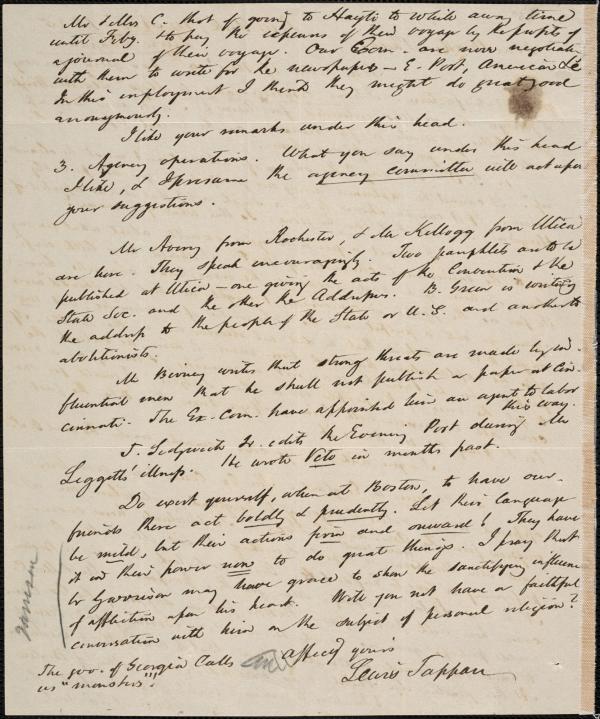 Mr & Mrs C. that of going to Hayti to while away time
until Feby. & to pay the expenses of their voyage by the profits of
a journal of their voyage. Our Com. are now negotiating
with them to write for the newspapers — E. Post, American &c
In this employment I think they might do great good
anonymously.
I like your remarks under this head.
3. Agency operations. What you say under this head
I like, & I presume the agency committee will act upon
your suggestions.
Mr Avery from Rochester, & Mr Kellogg from Utica
are here. They speak encouragingly. Two pamphlets are to be
published at Utica — one giving the acts of the Convention & the
State Soc. and the other the Addresses. B. Green is writing
the address to the people of the State or U.S. and another to
abolitionists.
Mr Birney writes that strong threats are made by in-
fluential men that he shall not publish a paper at Cin-
cinnati. The Ex. Com. have appointed him an agent to labor
this way.
T. Sedgwick Jr. edits the Evening Post during Mr
Leggetts' illness. He wrote Veto in months past.
Do exert yourself, when at Boston, to have our
friends there act boldly & prudently. Let their language
be mild, but their actions firm and onward! They have
it in their power now to do great things. I pray that
br Garrison may have grace to show the sanctifying influence
of affliction upon his heart. Will you not have a faithful
conversation with him on the subject of personal religion?
affecy yours
Lewis Tappan
The gov. of Georgia calls
us "monsters"!